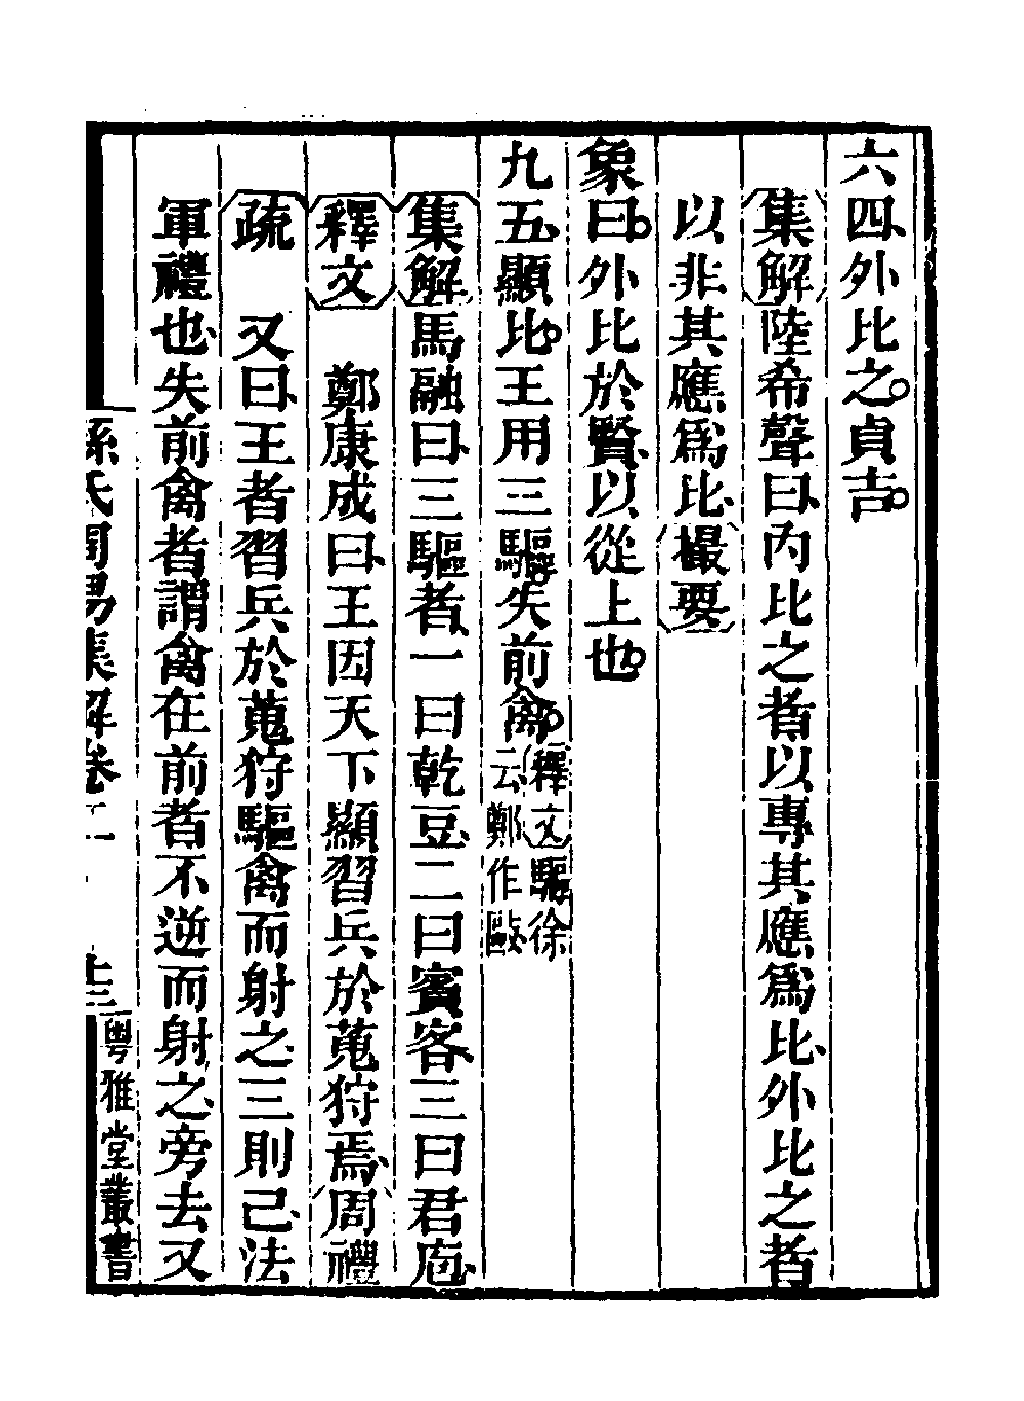 六四外比之貞吉
集解陸希聲曰內比之者以專其應爲比外比之者
以非其應爲比撮要
象曰外比於賢以從上也
九五顯比王用三驅失前禽釋文驅徐
云鄭作敺
集解馬融曰三驅者一曰乾豆二曰賓客三曰君庖
釋文鄭康成曰王因天下顯習兵於蒐狩焉周禮
疏又曰王者習兵於蒐狩驅禽而射之三則己法
軍禮也失前禽者謂禽在前者不逆而射之旁去又
孫氏周易集解卷二
十三
粵雅堂叢書